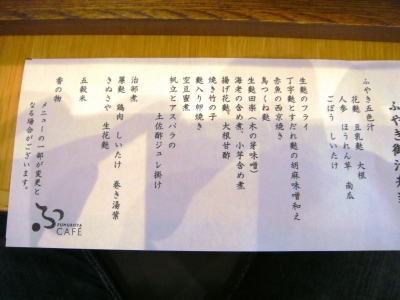 ふやき御汁弁当
ふやき五色汁
花麩 豆乳麩 大根
人参 ほうれん草 南瓜
ごぼう しいたけ
生麩のフライ
丁字麩とすだれ麩の胡麻味噌和え
赤魚の西京焼き
鳥つくね麩
生麩田楽(木の芽味噌)
海老の含め煮、小芋含め煮
揚げ花麩、大根甘酢
焼き竹の子
麩入り卵焼き
空豆蜜煮
帆立とアスパラの
土佐酢ジュレ掛け
治部煮
簾麩 鶏肉 しいたけ 巻き湯葉
きぬさや 生花麩
五穀米
香の物
メニューの一部が変更と
なる場合がございます。
ふ
FUMUROYA
CAFÉ